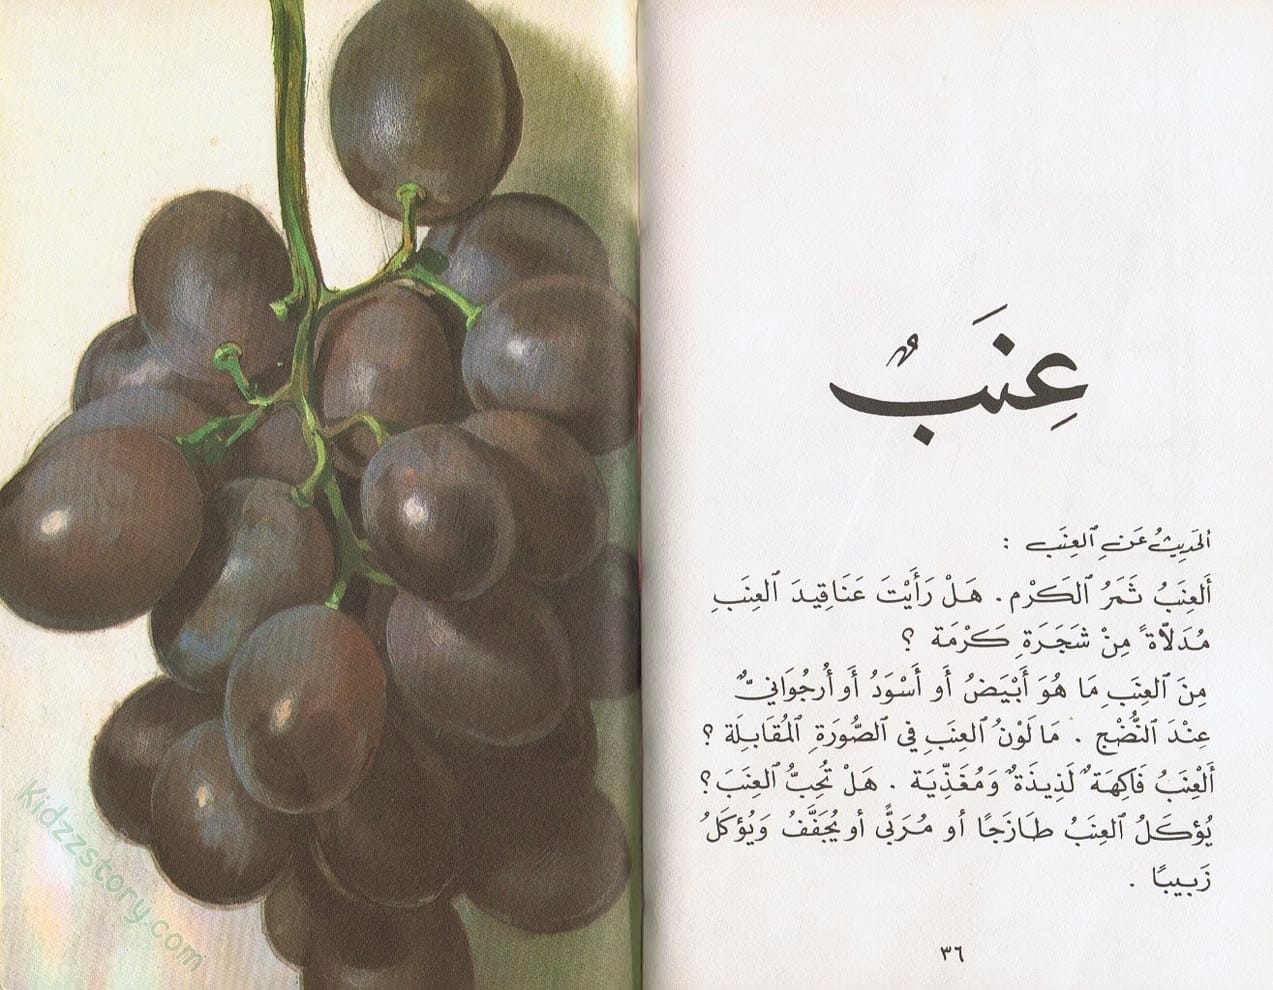 عِنَبٌ
اَلحَدِيثُ عَنِ ٱلعِنَبِ :
أَلعِنَبُ ثَمَرُ ٱلكَرْمِ . هَلْ رَأَيْتَ عَنَاقِيدَ ٱلعِنَبِ
مُدَلّاةً مِنْ شَجَرَةِ كَرْمَة ؟
مِنَ ٱلعِنَبِ مَا هُوَ أَبْيَضُ أَو أَسْوَدُ أَو أُرجُوَانيٌّ
عِنْدَ ٱلنُّضْجِ . مَا لَوْنُ ٱلعِنَبِ فِي ٱلصُّورَةِ ٱلمُقَابِلَة ؟
أَلْعِنَبُ فَاكِهَةٌ لَذِيذَةٌ وَمُغَذِّيَة . هَلْ تُحِبُّ ٱلعِنَبَ ؟
يُؤكَلُ ٱلعِنَبُ طَازَجًا أو مُرَبًّى أو يُجَفَّفُ وَيُؤكَلُ
زَبِيبًا .
٣٦
Kidzzstory.com